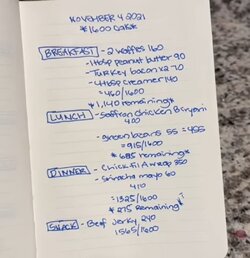 NOVEMBER 4 2021
*1600 cals*
BREAKFAST - 2 waffles 160
- 1 tbsp peanut butter 90
- Turkey bacon x2 70
- 4 tbsp creamer 140
= 460/1600
*1,140 remaining*
LUNCH - saffron chicken Biryani
400
- green beans 55 = 455
= 915/1600
*685 remaining*
DINNER - Chick fil A wrap 350
- sriracha mayo 60
410
= 1325/1600
*275 remaining*
SNACK - Beef Jerky 240
1565/1600